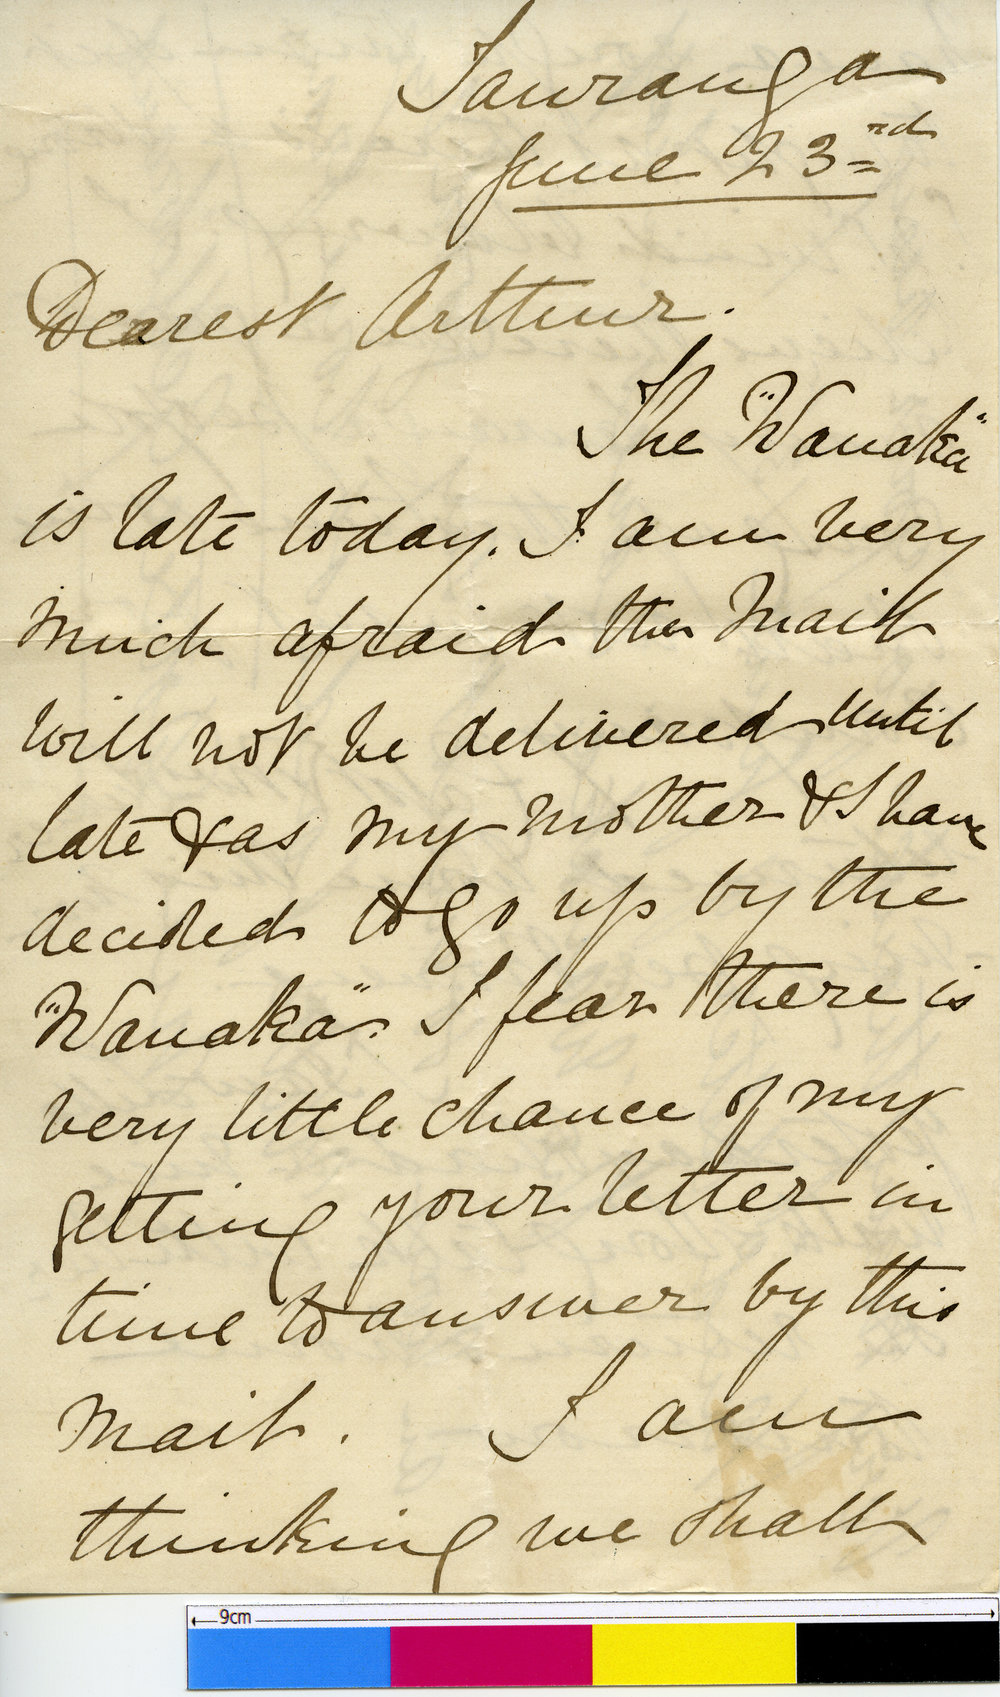 Tauranga
June 23rd
Dearest Arthur.
The "Wanaka"
is late today. I am very
much afraid the Mail
will not be delivered until
late & as my mother & I have
decided to go up by the
"Wanaka". I fear there is
very little chance of my
getting your letter in
time to answer by this
Mail. I am
thinking we shall
9cm